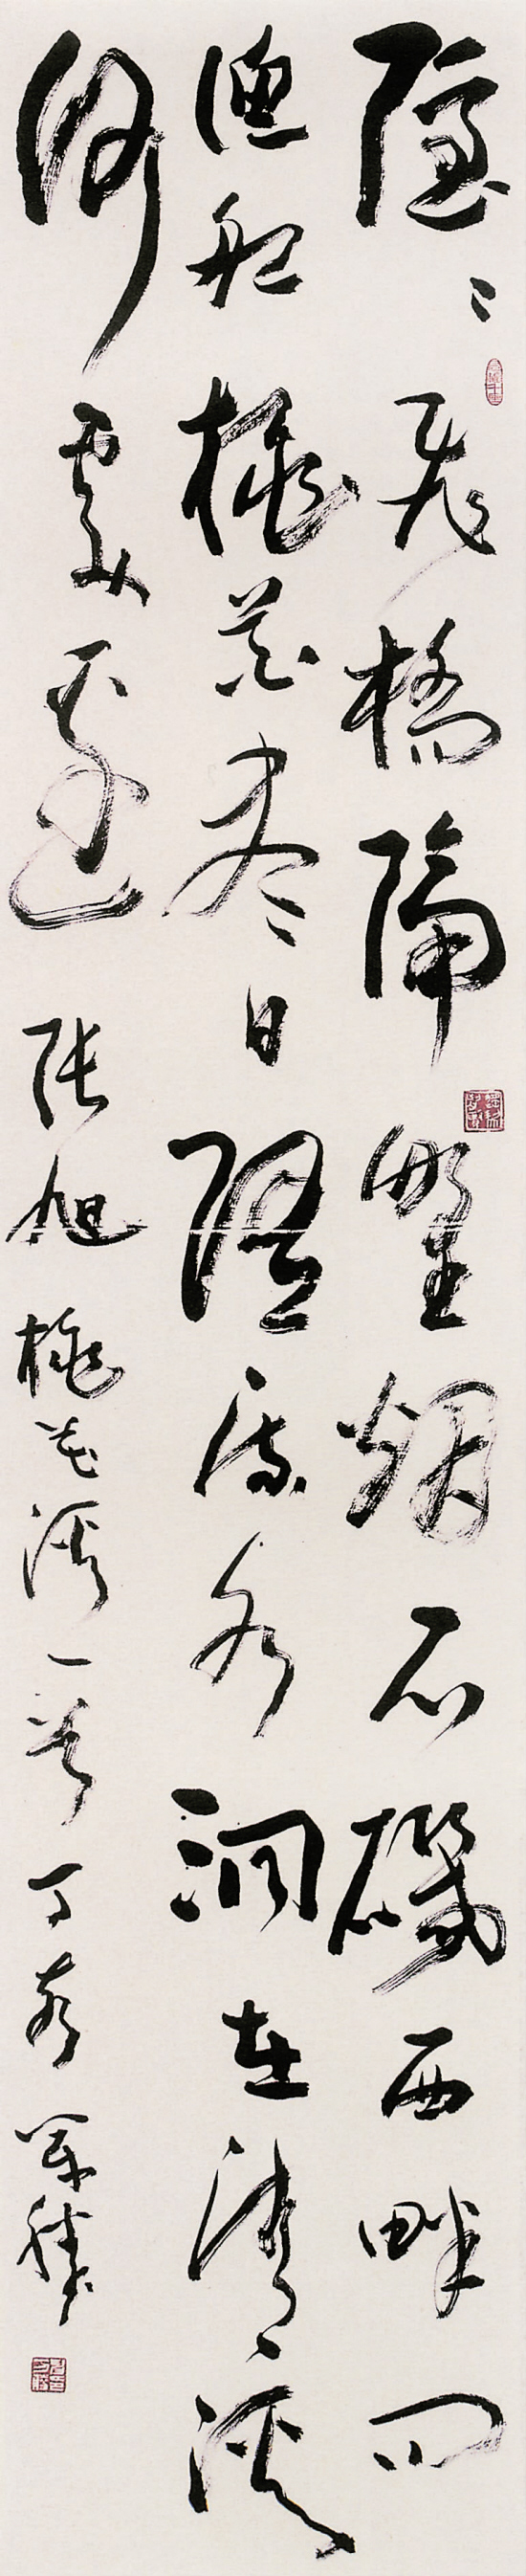 隐〻飞桥隔野烟石矶西畔问
渔船桃花尽日随流水洞在清溪
何处边 张旭桃花溪一首 丁亥 军胜